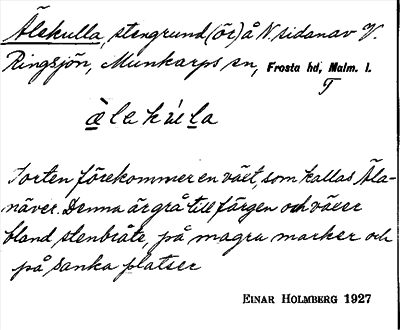 Älekulla, stengrund (ör) å N. sidan av V.
Ringsjön, Munkarps sn, Frosta hd, Malm. l.
T
àlakúla
Torten förekommer en växt, som kallas Äla-
näver. Denna är grå till färgen och växer
bland stenbråte, på magra marker och
på sanka platser
EINAR HOLMBERG 1927